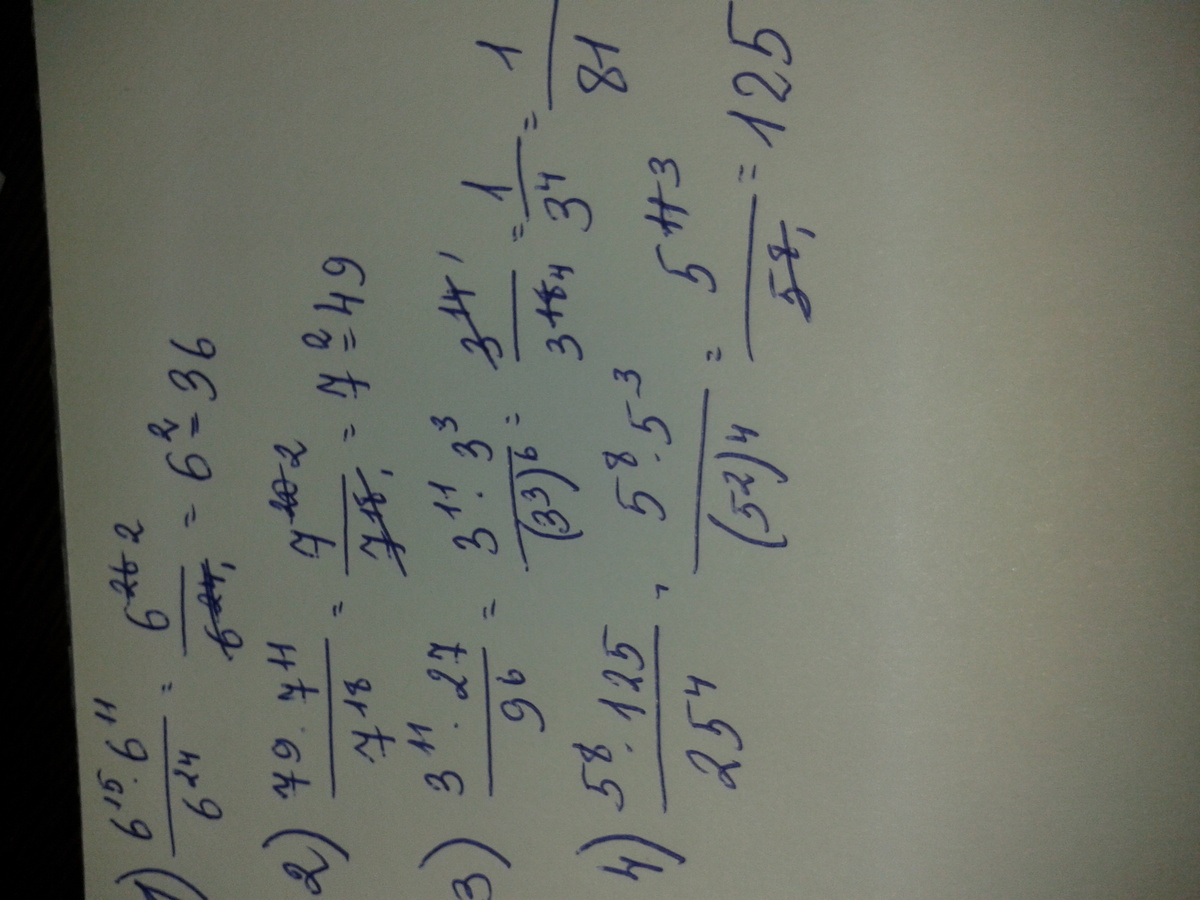 1) 6¹⁵·6¹¹/6²⁴ = 6²⁶ 2/6²⁴ 1 = 6² = 36
2) 7⁹·7¹¹/7¹⁸ = 7²⁰ 2/7¹⁸ 1 = 7² = 49
3) 3¹¹·27/9⁶ = 3¹¹·3³/(3³)⁶ = 3¹⁴ 1/3¹⁸ 4 = 1/3⁴ = 1/81
4) 5⁸·125/25⁴ = 5⁸·5³/(5²)⁴ = 5¹¹ 3/5⁸ 1 = 125